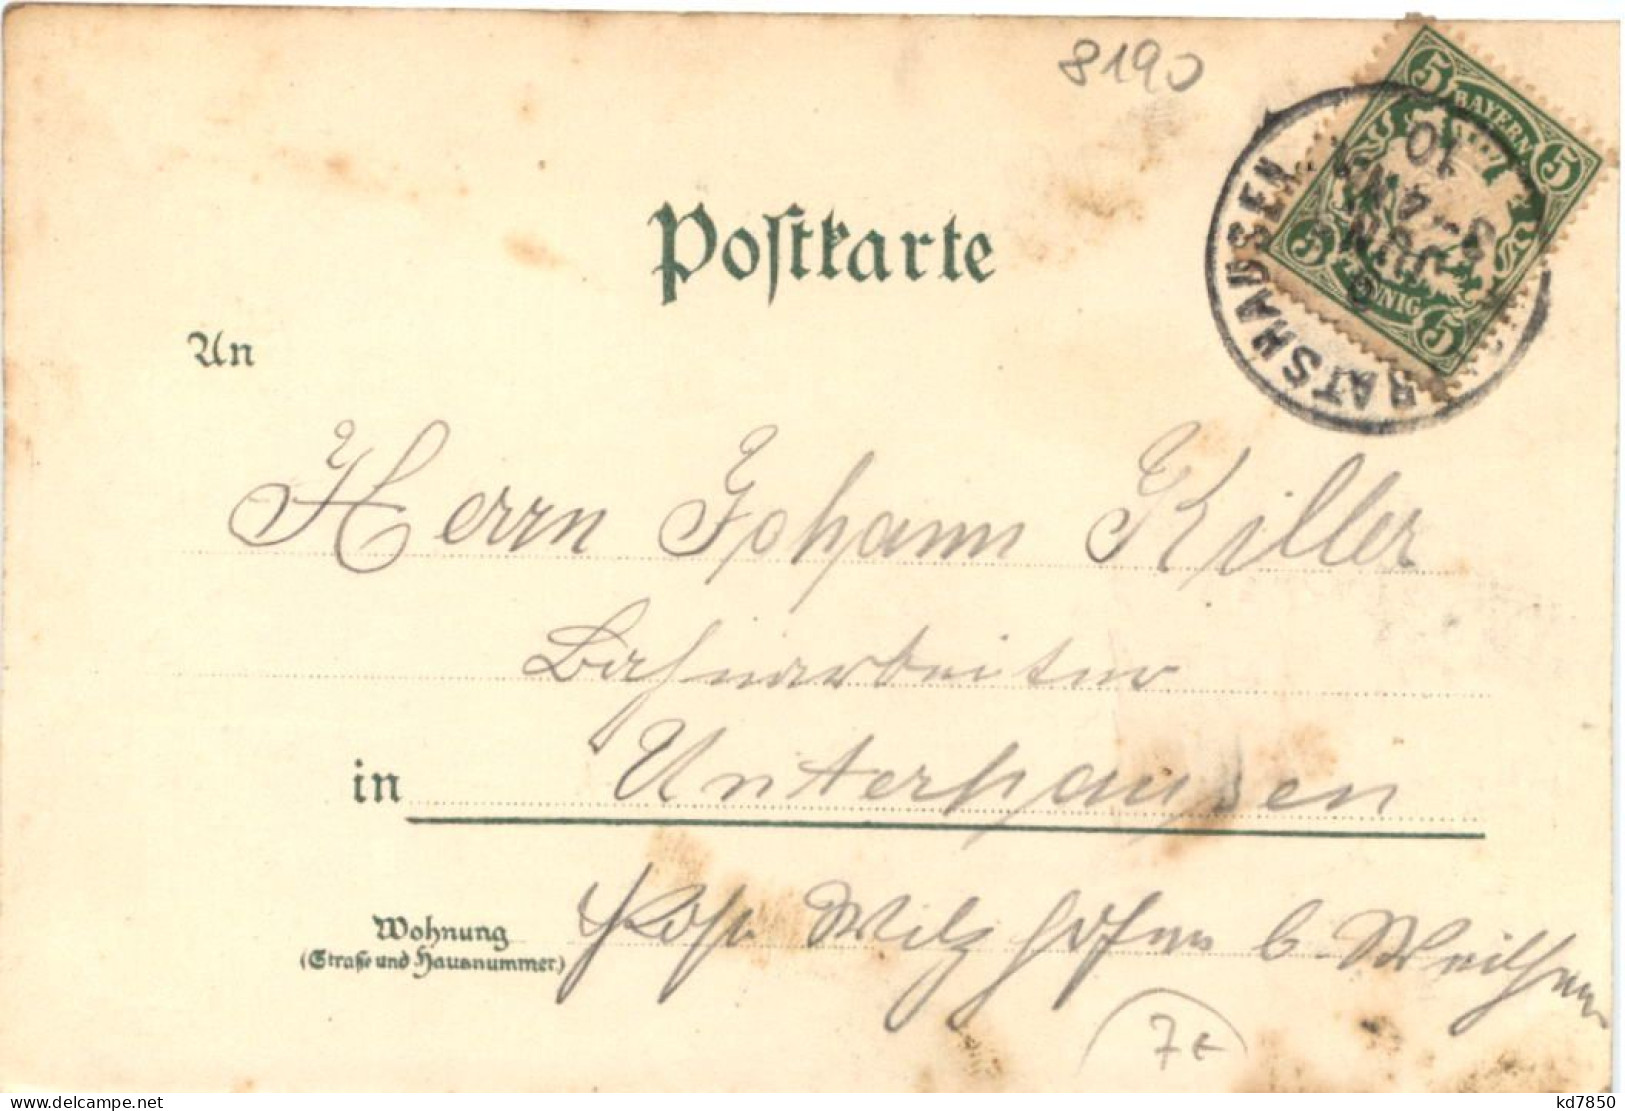 8190
5 BAYERN 5
5 PFENNIG 5
RATSHAUSEN
10
Postkarte
An
Herrn Johann Killer
Bahnarbeiter
in Unterhausen
Wohnung
(Straße und Hausnummer)
Post Wilzhofen b. Weilheim
7€
delcampe.net
kd7850